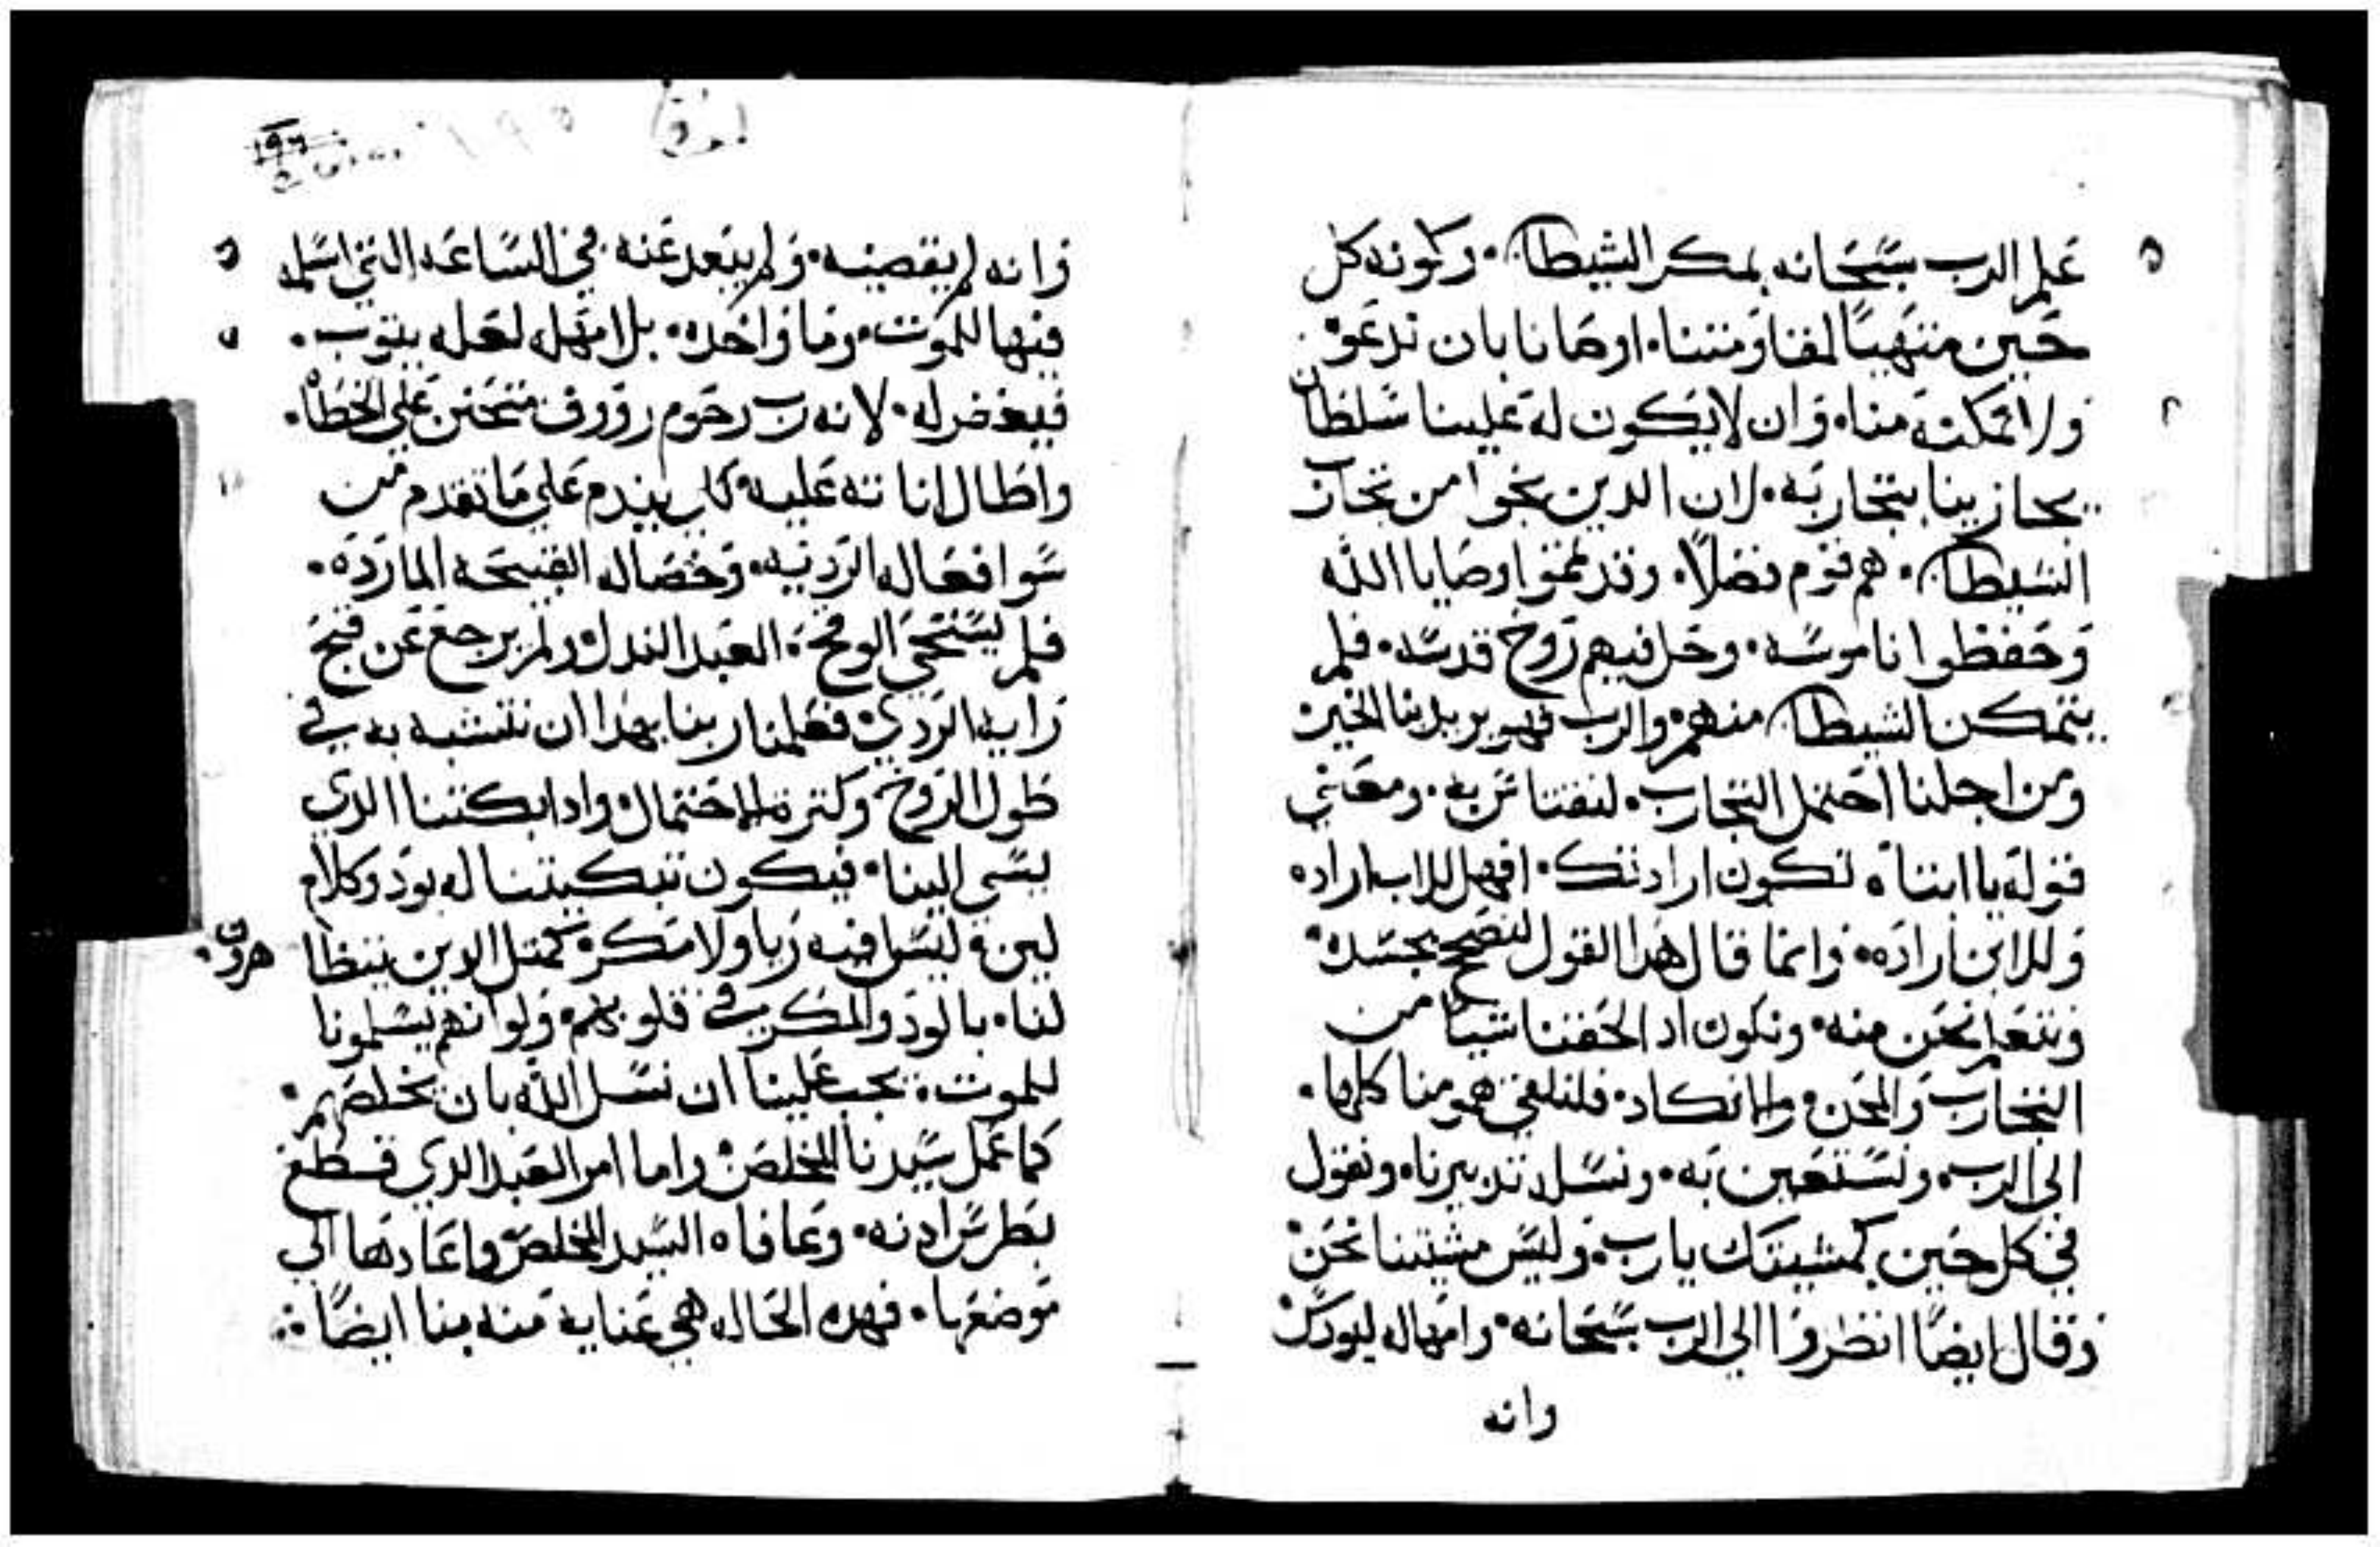 علم الرب سبحانه بمكر الشيطان. وكونه كل
حين متهيأ لمقاومتنا. اوصانا بان ندعوه
ولا تمكنه منا. وان لا يكون له علينا سلطان
يحازبنا بتجاربه. لان الدين نجوا من تجارب
الشيطان. هم قوم فضلا. وقد تمموا وصايا الله
وحفظوا ناموسه. وحل فيهم روح قدسه. فلم
يتمكن الشيطان منهم. والرب فهو يريد لنا الخير
ومن اجلنا احتمل التجارب. لثقتنا به. ومعني
قوله يا ابتاه تكون ارادتك. افهل للاب اراده
وللابن اراده. وانما قال هدا القول لتصح بجسده
ونتعلم نحن منه. ونكون اد الحقنا شيا من
التجارب والمحن والانكاد. فلنلقي همومنا كلها.
الي الرب. ونستعين به. ونسله تدبيرنا. ونقول
في كل حين كمشيتك يارب. وليس مشيتنا نحن
وقال ايضاً انظروا الي الرب سبحانه. وامهاله ليودس
وانه
وانه لم يقصيه. ولم يبعد عنه. في الساعه التي اسلمه
فيها للموت. وما واخده. بل امهله لعله يتوب.
فيغفر له. لانه رب رحوم رووف متحنن علي الخطاه.
واطال اناته عليه كي يندم علي ما تقدم من
سو افعاله الرديه. وخصاله القبيحه المارده.
فلم يستحي الوقح. العبد الندل ولم يرجع عن قبح
رايه الردي. فعلمنا ربنا بهدا ان نتشبه به في
طول الروح وكترة الاحتمال. وادا بكتنا الدي
يسي الينا. فيكون تبكيتنا له بود وكلام
لين. وليس فيه ريا ولا مكر. كمتل الدين ينظا
هروا.
لنا. بالود والمكر في قلوبهم. ولو انهم يسلمونا
للموت. يجب علينا ان نسل الله بان يخلصهم.
كما عمل سيدنا المخلص. واما امر العبد الدي قطع
بطرس ادنه. وعافاه السيد المخلص واعادها الي
موضعها. فهده الحاله هي عناية منه بنا ايضاً